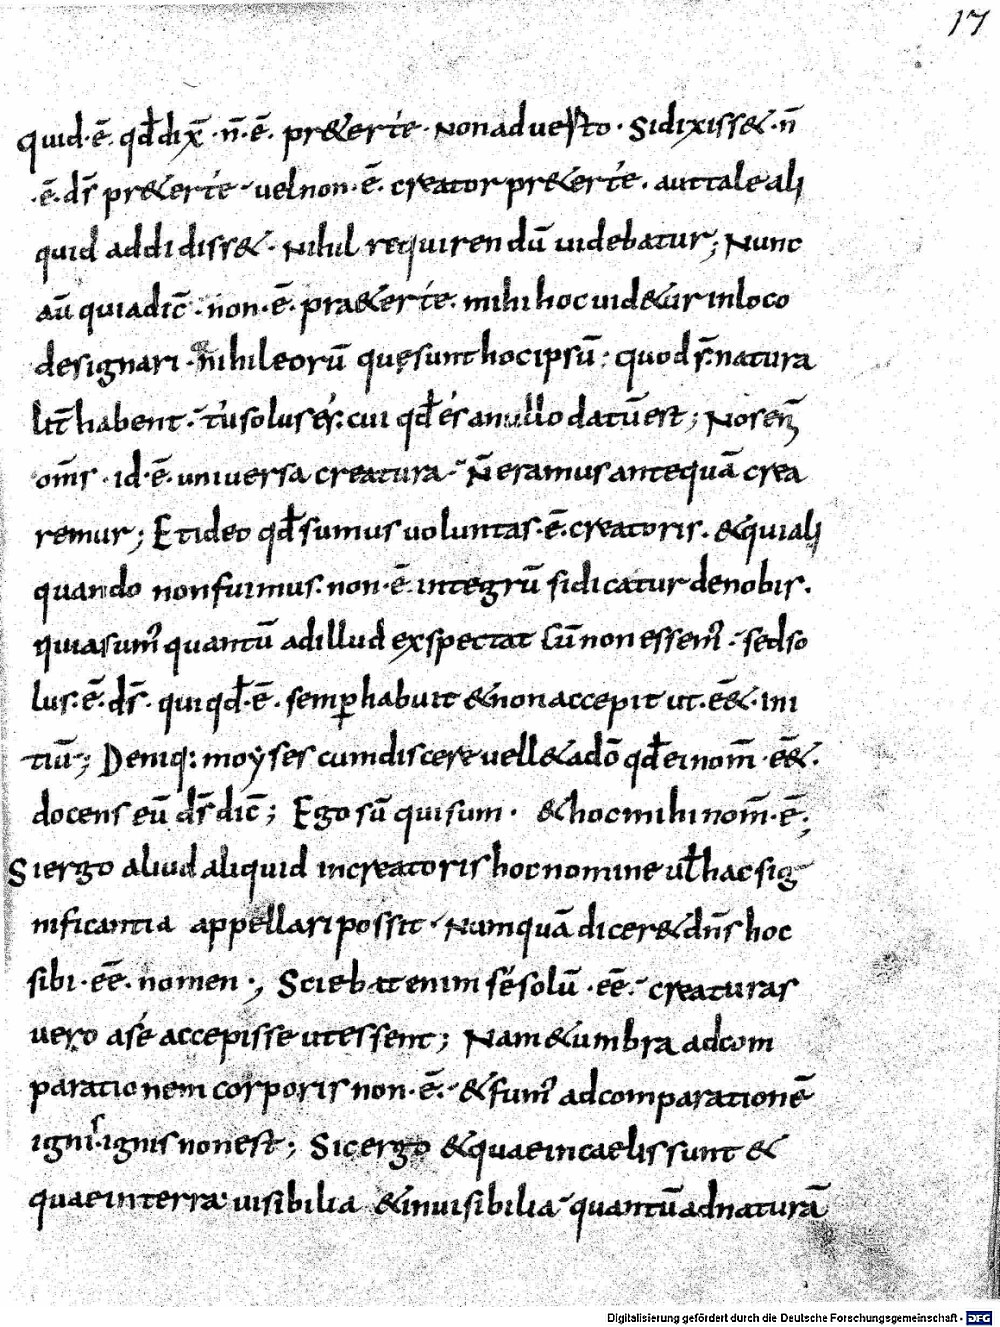 17
quid·ē· qđ dix̄ ·n̄·ē· pr&er té · Non ad uesto · Si dixiss& · n̄
·ē· d̄s pr&er té · uel non·ē· creator pr&er té · aut tale ali
quid addidiss& · Nihil requirendū uidebatur; Nunc
aū quia dic̄ · non·ē· pra&er té · mihi hoc uid&ur in loco
designari · nihil eorū quę sunt hoc ipsū : quod s̄ · natura
lit̄ habent · tu solus és · cui qđ és a nullo datū est ; Nos en̄
om̄s · id·ē· uniuersa creatura · N̄ eramus antequā crea
remur ; Et ideo qđ sumus uoluntas·ē· creatoris · & quia ali
quando non fuimus · non·ē· integrū si dicatur de nobis ·
quia sum' quantū ad illud exspectat cū non essem' · sed so
lus·ē· d̄s · qui qđ·ē· semꝑ habuit & non accepit ut · ē& · ini
tiū ; Deniq: moẏses cum discere uell& a dō qđ ei nom̄ · ē& ·
docens eū d̄s dic̄ ; Ego sū qui sum · & hoc mihi nom̄·ē· ;
Si ergo aliud aliquid in creatoris hoc nomine uł hac sig
nificantia appellari possit · Numquā dicer& dn̄s hoc
sibi · eē · nomen ·, Sciebat enim sé solū · eē · creaturas
uero a sé accepisse ut essent ; Nam & umbra ad com
parationem corporis non·ē· & fum' ad comparationē
ignis · ignis non est ; Sic ergo & quae in caelis sunt &
quae in terra uisibilia & inuisibilia quantū ad naturā
Digitalisierung gefördert durch die Deutsche Forschungsgemeinschaft - DFG